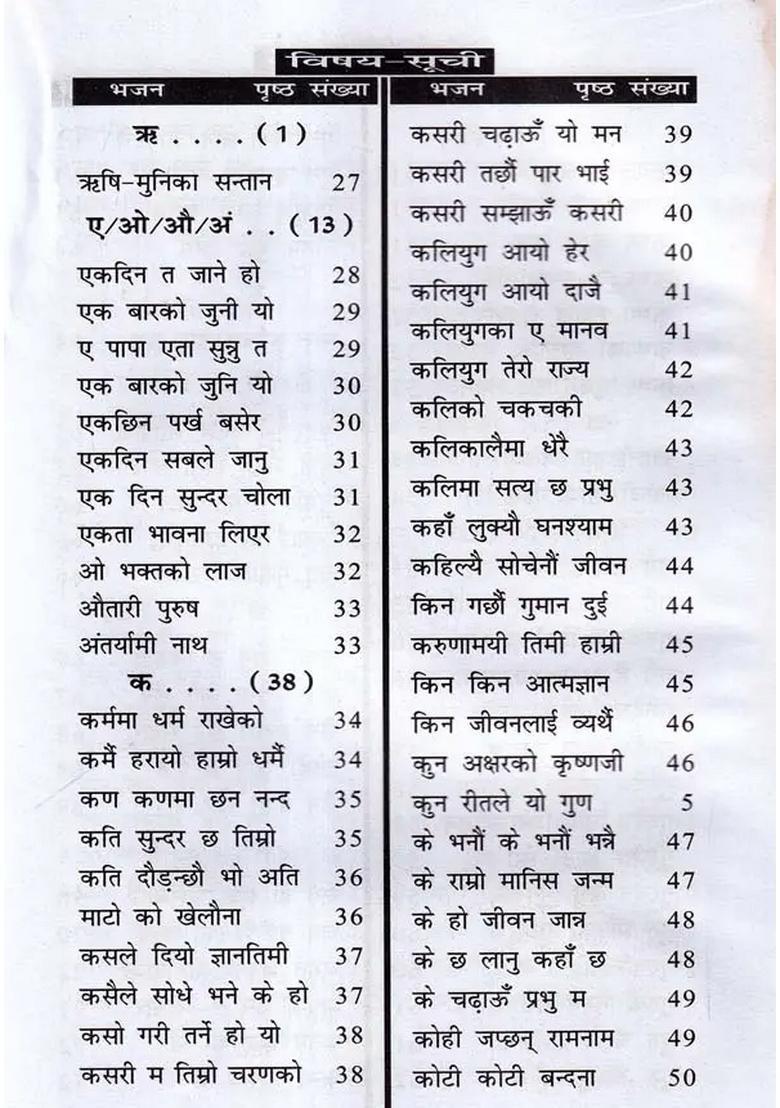 विषय-सूची
भजन पृष्ठ संख्या
ऋ . . . . ( 1 )
ऋषि-मुनिका सन्तान 27
ए/ओ/औ/अं . . ( 13 )
एकदिन त जाने हो 28
एक बारको जुनी यो 29
ए पापा एता सुन्नु त 29
एक बारको जुनि यो 30
एकछिन पर्ख बसेर 30
एकदिन सबले जानु 31
एक दिन सुन्दर चोला 31
एकता भावना लिएर 32
ओ भक्तको लाज 32
औतारी पुरुष 33
अंतर्यामी नाथ 33
क . . . . ( 38 )
कर्ममा धर्म राखेको 34
कर्मै हरायो हाम्रो धर्मै 34
कण कणमा छन नन्द 35
कति सुन्दर छ तिम्रो 35
कति दौडन्छौ भो अति 36
माटो को खेलौना 36
कसले दियो ज्ञानतिमी 37
कसैले सोधे भने के हो 37
कसो गरी तर्ने हो यो 38
कसरी म तिम्रो चरणको 38
भजन पृष्ठ संख्या
कसरी चढ़ाऊँ यो मन 39
कसरी तर्छौ पार भाई 39
कसरी सम्झाऊँ कसरी 40
कलियुग आयो हेर 40
कलियुग आयो दाजै 41
कलियुगका ए मानव 41
कलियुग तेरो राज्य 42
कलिको चकचकी 42
कलिकालैमा धेरै 43
कलिमा सत्य छ प्रभु 43
कहाँ लुक्यौ घनश्याम 43
कहिल्यै सोचेनौं जीवन 44
किन गर्छौ गुमान दुई 44
करुणामयी तिमी हाम्री 45
किन किन आत्मज्ञान 45
किन जीवनलाई व्यर्थै 46
कुन अक्षरको कृष्णजी 46
कुन रीतले यो गुण 5
के भनौं के भनौं भन्नै 47
के राम्रो मानिस जन्म 47
के हो जीवन जान्न 48
के छ लानु कहाँ छ 48
के चढ़ाऊँ प्रभु म 49
कोही जप्छन् रामनाम 49
कोटी कोटी बन्दना 50